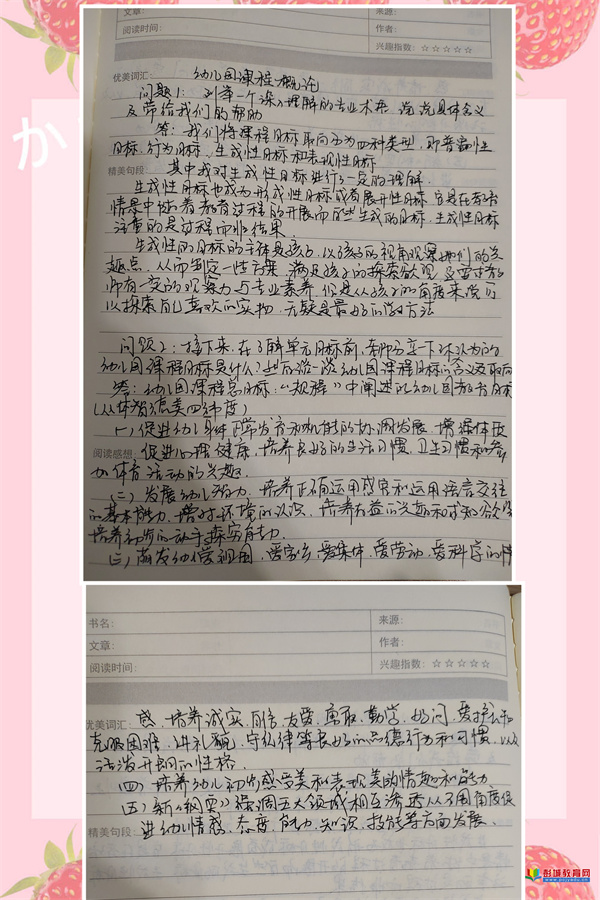 文章：
来源：
阅读时间：
兴趣指数：☆☆☆☆☆
优美词汇：
幼儿园课程概论
问题1：列举一个深入理解的专业术语，说说具体含义
及带给我们的帮助
答：我们将课程目标取向分为四种类型，即普遍性
目标、行为目标、生成性目标和表现性目标
精美句段：
其中我对生成性目标进行了一定的理解．
生成性目标也成为形成性目标或者展开性目标，它是在教育
情景中随着教育过程的开展而自然生成的目标，生成性目标
注重的是过程而非结果．
生成性的目标的主体是孩子，以孩子的视角观察他们的兴
趣点，从而制定一些方案，满足孩子的探索欲望，这要求教
师有一定的观察力与专业素养，但是从孩子的角度来说可
以探索自己喜欢的实物，无疑是最好的教学方法
问题2：接下来，在了解单元目标前，
幼儿园课程目标是什么？然后谈一谈幼儿园课程目标的含义及取向
答：幼儿园课程总目标：“规程”中阐述的幼儿园教育目标
（从体智德美四纬度）
（一）促进幼儿身体正常发育和机能的协调发展，增强体质
阅读感想：
促进心理健康，培养良好的生活习惯、卫生习惯和参
加体育活动的兴趣．
（二）发展幼儿智力，培养正确运用感官和运用语言交往
的基本能力，增对环境的认识，培养有益的兴趣和求知欲望
培养初步的动手探究能力．
（三）萌发幼儿爱祖国、爱家乡、爱集体、爱劳动、爱科学的情
书名：
来源：
文章：
作者：
阅读时间：
兴趣指数：☆☆☆☆☆
优美词汇：
感，培养诚实、自信、友爱、勇敢、勤学、好问、爱护公物
克服困难、讲礼貌、守纪律等良好的品德行为和习惯，以及
活泼开朗的性格
（四）培养幼儿初步感受美和表现美的情趣和能力
（五）新《纲要》强调五大领域相互渗透从不同角度促
精美句段：
进幼儿情感、态度、能力、知识、技能等方面发展．
彭城教育网